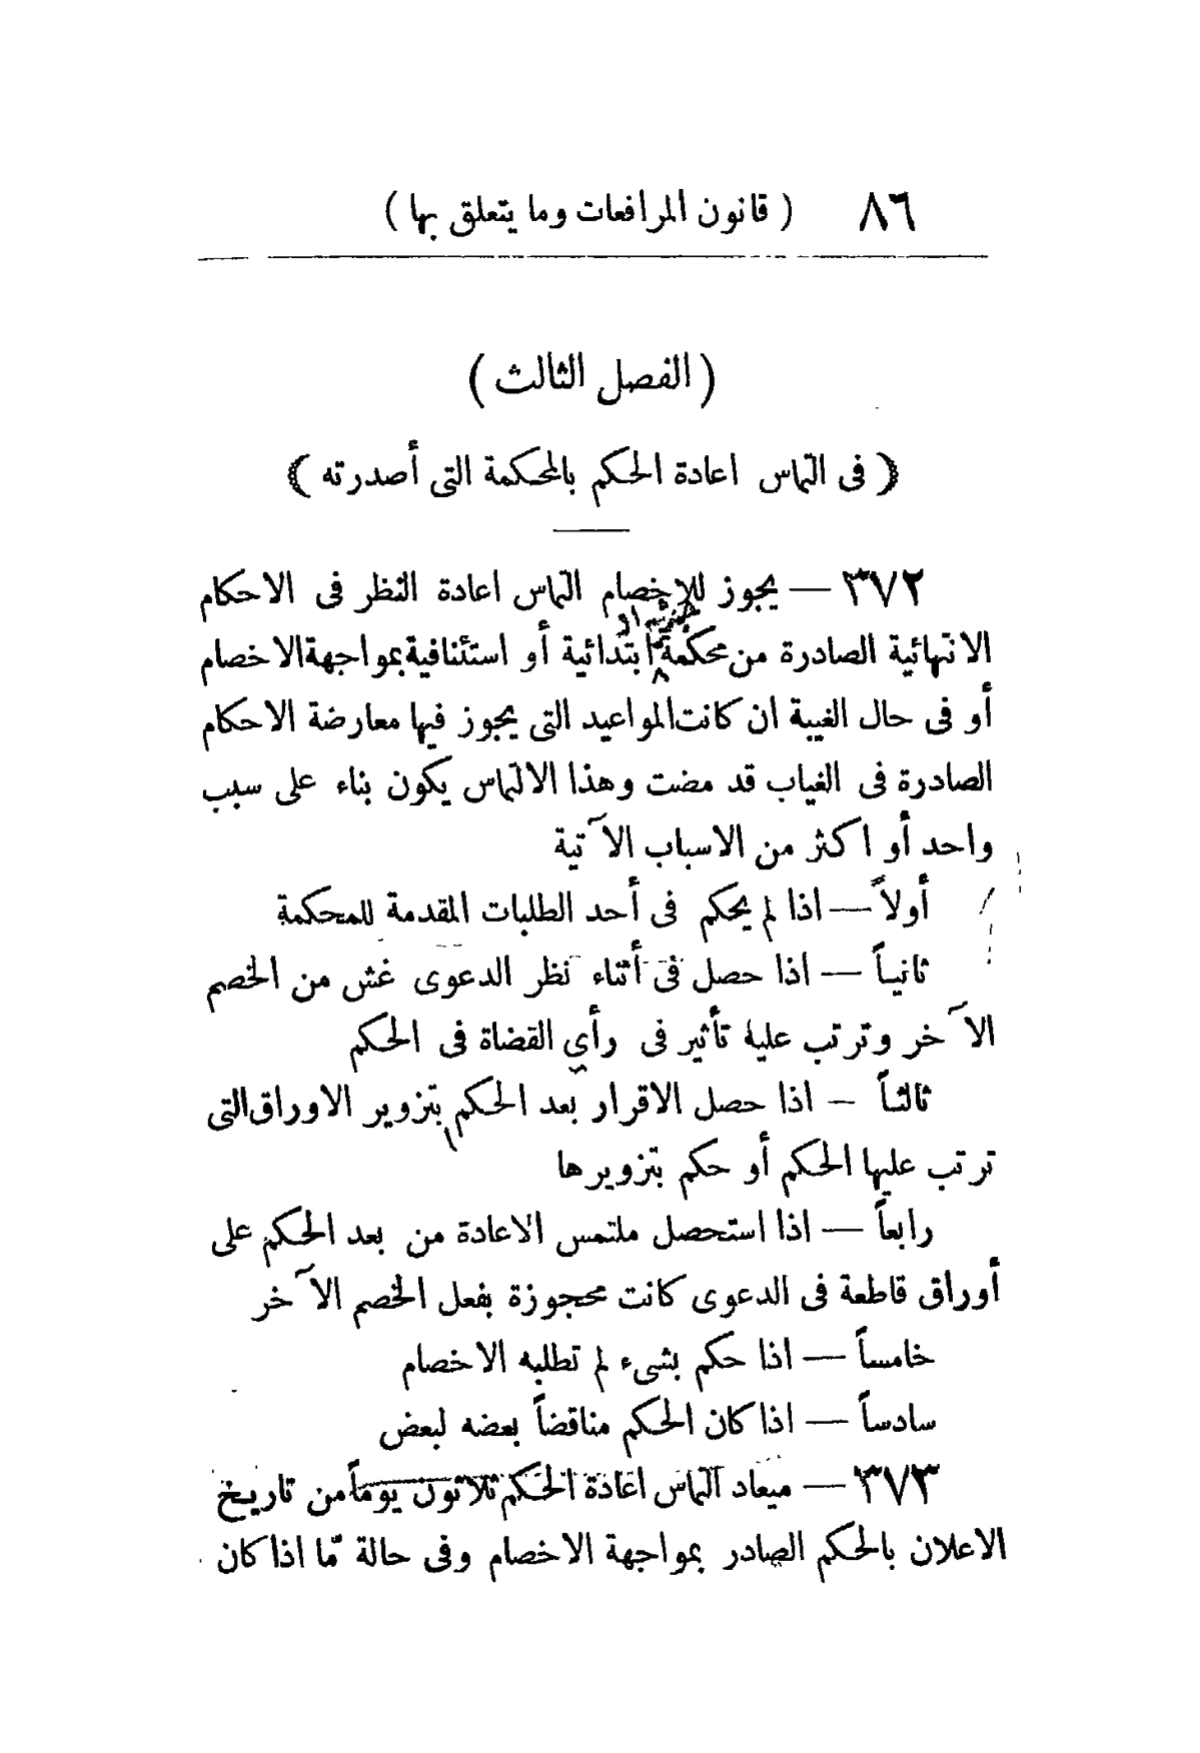 ٨٦ ( قانون المرافعات وما يتعلق بها )
( الفصل الثالث )
( فى التماس اعادة الحكم بالمحكمة التى أصدرته )
٣٧٢ — يجوز للاخصام التماس اعادة النظر فى الاحكام
الانتهائية الصادرة من محكمة ابتدائية أو استئنافية بمواجهة الاخصام
أو فى حال الغيبة ان كانت المواعيد التى يجوز فيها معارضة الاحكام
الصادرة فى الغياب قد مضت وهذا الالتماس يكون بناء على سبب
واحد أو اكثر من الاسباب الآتية
أولاً — اذا لم يحكم فى أحد الطلبات المقدمة للمحكمة
ثانياً — اذا حصل فى أثناء نظر الدعوى غش من الخصم
الآخر وترتب عليه تأثير فى رأي القضاة فى الحكم
ثالثاً — اذا حصل الاقرار بعد الحكم بتزوير الاوراق التى
ترتب عليها الحكم أو حكم بتزويرها
رابعاً — اذا استحصل ملتمس الاعادة من بعد الحكم على
أوراق قاطعة فى الدعوى كانت محجوزة بفعل الخصم الآخر
خامساً — اذا حكم بشىء لم تطلبه الاخصام
سادساً — اذا كان الحكم مناقضاً بعضه لبعض
٣٧٣ — ميعاد التماس اعادة الحكم ثلاثون يوماً من تاريخ
الاعلان بالحكم الصادر بمواجهة الاخصام وفى حالة ما اذا كان